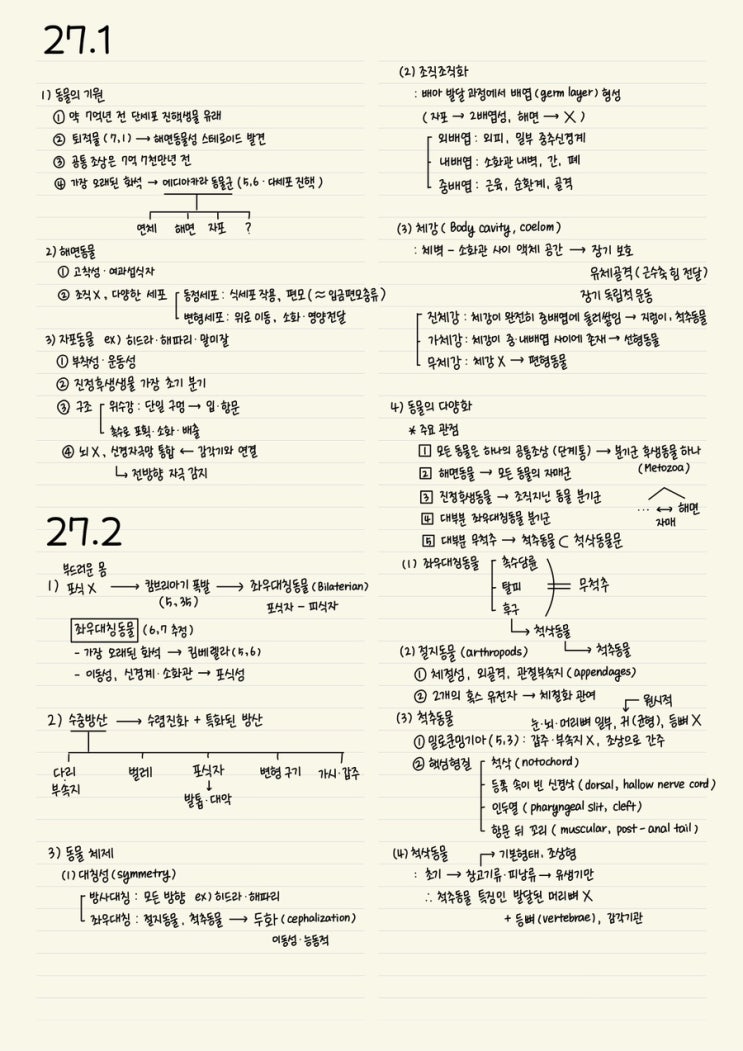 27.1
1) 동물의 기원
① 약 7억년 전 단세포 진핵생물 유래
② 퇴적물 (7,1) → 해면동물성 스테로이드 발견
③ 공통 조상은 7억 7천만년 전
④ 가장 오래된 화석 → 에디아카라 동물군 (5,6 · 다세포 진핵)
연체 해면 자포 ?
2) 해면동물
① 고착성 · 여과섭식자
② 조직 X, 다양한 세포 동정세포 : 식세포 작용, 편모 (≈ 입금편모충류)
변형세포 : 위로 이동, 소화 · 영양전달
3) 자포동물 ex) 히드라 · 해파리 · 말미잘
① 부착성 · 운동성
② 진정후생생물 가장 초기 분기
③ 구조 위수강 : 단일 구멍 → 입 · 항문
촉수로 포획 · 소화 · 배출
④ 뇌 X, 신경자극망 통합 ← 감각기와 연결
↳ 전방향 자극 감지
27.2
부드러운 몸
1) 포식 X → 캄브리아기 폭발 → 좌우대칭동물 (Bilaterian)
(5,35) 포식자 - 피식자
좌우대칭동물 (6,7 추정)
- 가장 오래된 화석 → 킴베렐라 (5,6)
- 이동성, 신경계 · 소화관 → 포식성
2) 수중방산 → 수렴진화 + 특화된 방산
다리 벌레 포식자 변형 구기 가시 · 갑주
부속지 ↓
발톱 · 대악
3) 동물 체제
(1) 대칭성 (symmetry)
방사대칭 : 모든 방향 ex) 히드라 · 해파리
좌우대칭 : 절지동물, 척추동물 → 두화 (cephalization)
이동성 · 능동적
(2) 조직조직화
: 배아 발달 과정에서 배엽 (germ layer) 형성
(자포 → 2배엽성, 해면 → X)
외배엽 : 외피, 일부 중추신경계
내배엽 : 소화관 내벽, 간, 폐
중배엽 : 근육, 순환계, 골격
(3) 체강 (Body cavity, coelom)
: 체벽 - 소화관 사이 액체 공간 → 장기 보호
유체골격 (근수축 힘 전달)
장기 독립적 운동
진체강 : 체강이 완전히 중배엽에 둘러쌓임 → 지렁이, 척추동물
가체강 : 체강이 중 · 내배엽 사이에 존재 → 선형동물
무체강 : 체강 X → 편형동물
4) 동물의 다양화
* 주요 관점
1 모든 동물은 하나의 공통조상 (단계통) → 분기군 후생동물 하나
(Metozoa)
2 해면동물 → 모든 동물의 자매군
3 진정후생동물 → 조직지닌 동물 분기군
... ↔ 해면
자매
4 대부분 좌우대칭동물 분기군
5 대부분 무척추 → 척추동물 ⊂ 척삭동물문
(1) 좌우대칭동물 촉수담륜
탈피 무척추
후구
↳ 척삭동물
↳ 척추동물
(2) 절지동물 (arthropods)
① 체절성, 외골격, 관절부속지 (appendages)
② 2개의 혹스 유전자 → 체절화 관여
원시적
(3) 척추동물 눈 · 뇌 · 머리뼈 일부, 귀 (균형), 등뼈 X
① 밀로쿤밍기아 (5,3) : 갑주 · 부속지 X, 조상으로 간주
② 핵심형질 척삭 (notochord)
등쪽 속이 빈 신경삭 (dorsal, hallow nerve cord)
인두열 (pharyngeal slit, cleft)
항문 뒤 꼬리 (muscular, post-anal tail)
(4) 척삭동물 → 기본형태, 조상형
: 초기 → 창고기류 · 피낭류 → 유생기만
∴ 척추동물 특징인 발달된 머리뼈 X
+ 등뼈 (vertebrae), 감각기관